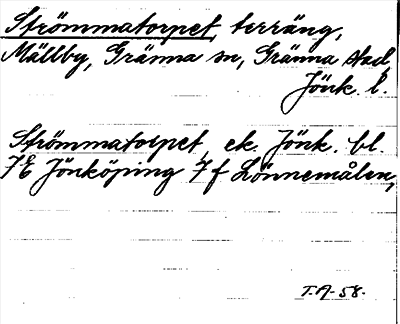 Strömmatorpet, terräng,
Mällby, Gränna sn, Gränna stad,
Jönk. l.
Strömmatorpet, ek. Jönk. bl.
7E Jönköping 7f Lönnemålen,
T.A-58.